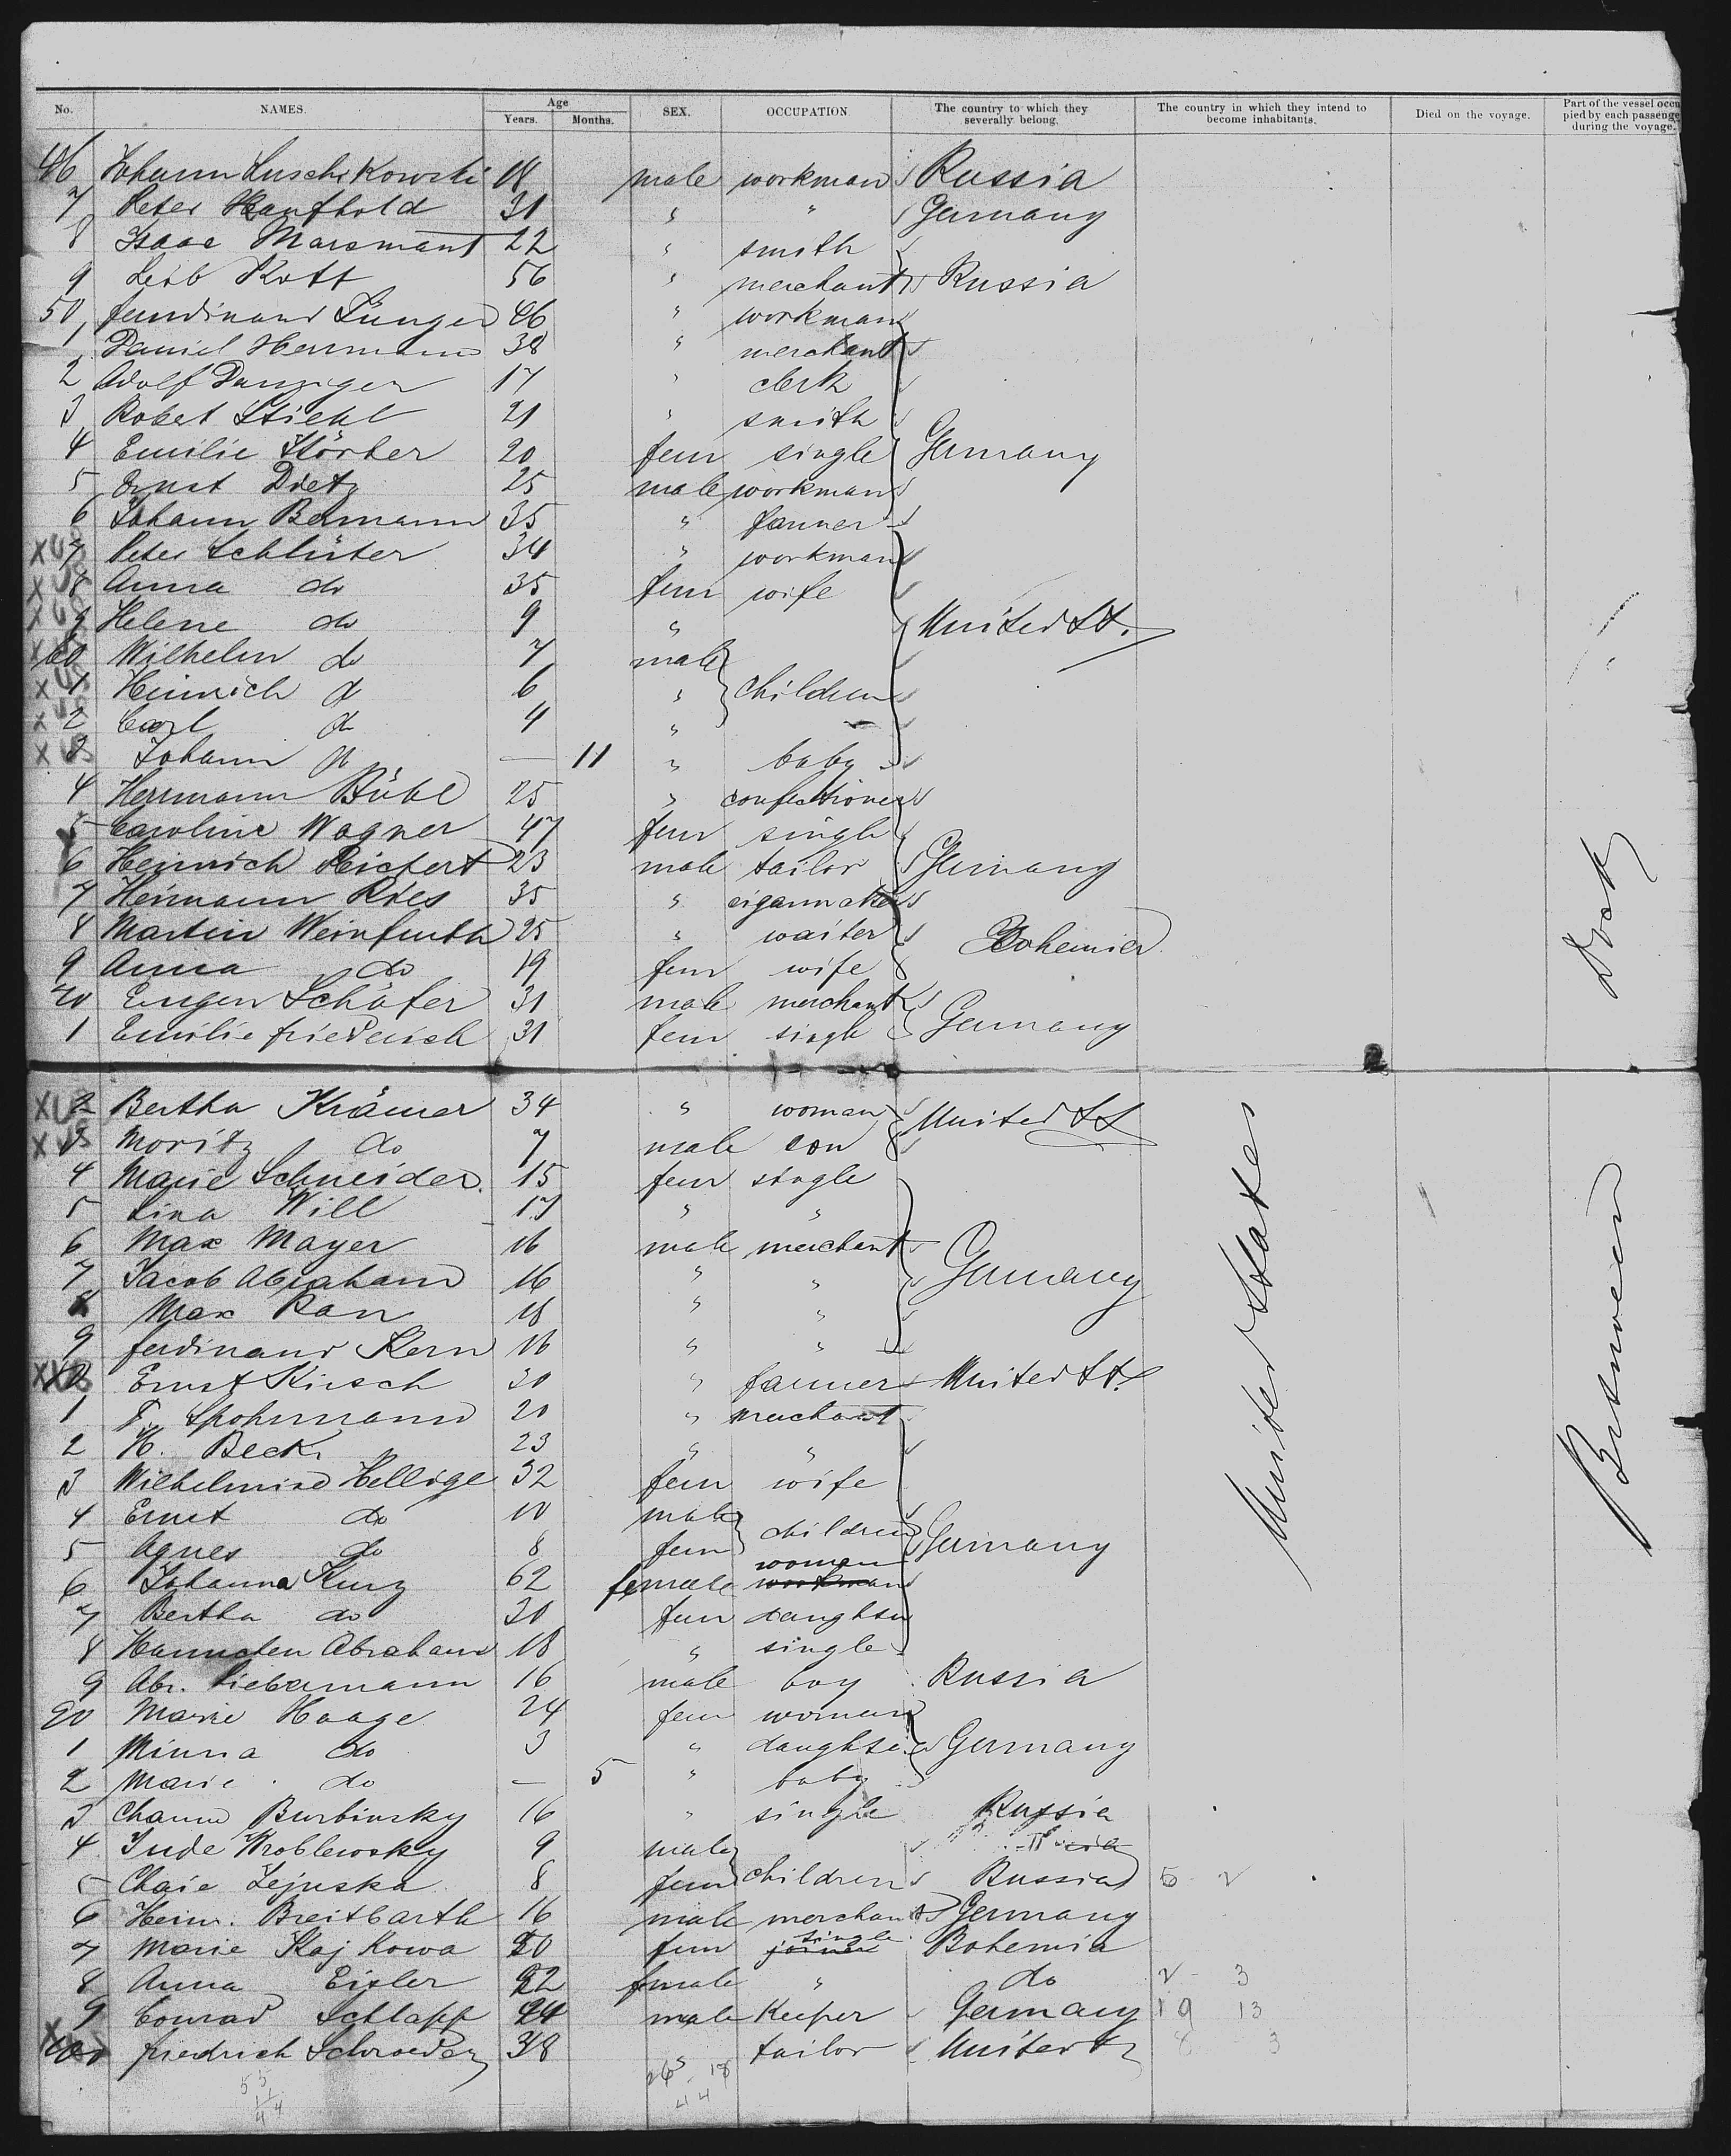 No. NAMES. Age Years. Months. SEX. OCCUPATION The country to which they severally belong. The country in which they intend to become inhabitants. Died on the voyage. Part of the vessel occu pied by each passenge during the voyage.
46 Johann Luschkowski 18 male workman Russia
7 Peter Kaufhold 31 " " Germany
8 Isaac Marsmant 22 " smith
9 Leib Kott 56 " merchant Russia
50 ferdinandÜnger 46 " workman
1 Daniel Herrmann 38 " merchant
2 Adolf Danziger 17 " clerk
3 Robet Stiehl 21 " smith
4 Emilie Störker 20 fem single Germany
5 Ernst Dietz 25 male workman
6 Johann Bermann 35 " farmer
7 Peter Schlüter 34 " workman
8 Anna do 35 fem wife
9 Helene do 9 " United St.
60 Wilhelm do 7 male
1 Heinrich do 6 " children
2 Carl do 4 "
3 Johann do — 11 " baby
4 Herrmann Bühl 25 " confectioner
5 Caroline Wagner 47 fem single
6 Heinrich Reichert 23 male tailor Germany
7 Hermann Ries 35 " cigarmaker
8 Martin Weinfurth 25 " waiter Bohemia
9 Anna do 19 fem wife
70 Eugen Schäfer 31 male merchant
1 Emilie friederich 31 fem single Germany
2 Bertha Krämer 34 " woman United St
3 Moritz do 7 male son
4 Marie Schneider 15 fem single
5 Lina Will 17 " "
6 Max Mayer 16 male merchant
7 Jacob Abraham 16 " " Germany
8 Max Ran 18 " "
9 ferdinand Kern 16 " "
80 Ernst Kirsch 30 " farmer United St.
1 F. Spohrmann 20 " merchant
2 H. Beck 23 " "
3 Wilhelmine Hellige 32 fem wife
4 Ernst do 10 male
5 Agnes do 8 fem children Germany
6 Johanna Kurz 62 female woman workman
7 Bertha do 30 fem daughter
8 Hannchen Abraham 18 " single
9 Abr. Liebermann 16 male boy Russia
90 Marie Haage 24 fem woman
1 Minna do 3 " daughter Germany
2 Marie do — 5 " baby
3 Channe Burbinsky 16 " single Russia
4 Jude Wroblewsky 9 male
5 Chaie Lejuska 8 fem children Russia
6 Heinr. Breitbarth 16 male merchant Germany
7 Marie Kaj Kowa 20 fem single Bohemia
8 Anna Eisler 22 fmale " do 2 3
9 Conrad Schlapp 24 male Keeper Germany 19 13
100 friedrich Schroeder 38 tailor United St 8 3
United States
Betweend
Deck